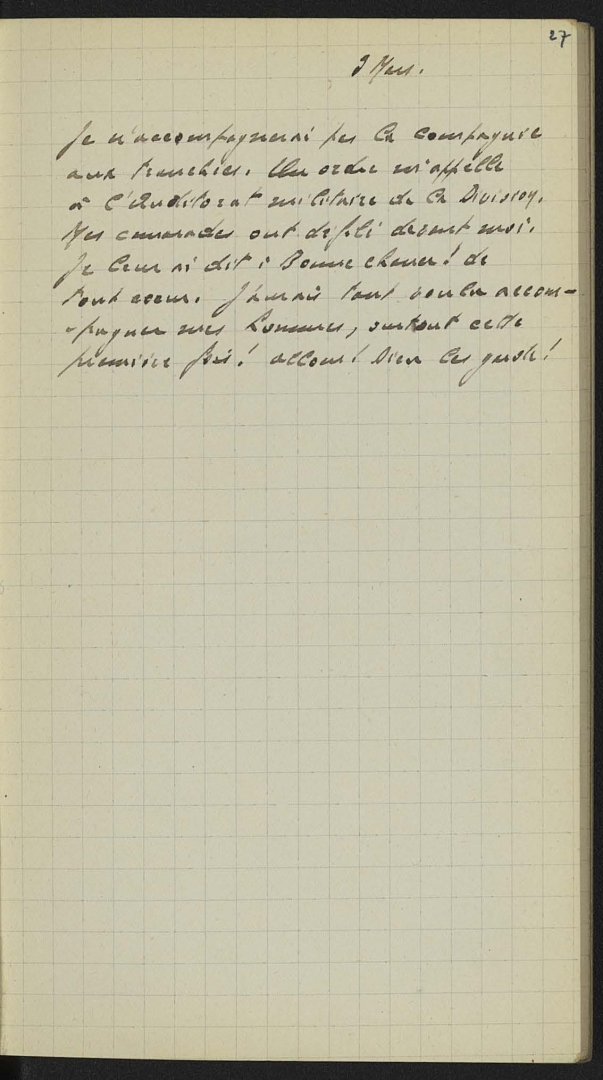 27
3 Mars.
Je n'accompagnerai pas la compagnie
aux tranchées. Un ordre m'appelle
à l'Auditorat militaire de la Division.
Mes camarades ont défilé devant moi.
Je leur ai dit : Bonne chance ! de
tout coeur. J'aurais tant voulu accom-
-pagner mes hommes, surtout cette
première fois ! allons ! Dieu les garde !